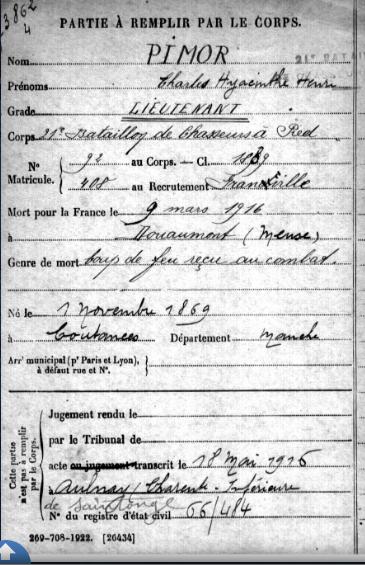 3862
4
PARTIE À REMPLIR PAR LE CORPS.
21e BATAI
Nom PIMOR
Prénoms Charles Hyacinthe Henri
Grade LIEUTENANT
Corps 21e Bataillon de Chasseurs à Pied
No Matricule. { 92 au Corps. — Cl. 1889
408 au Recrutement Granville
Mort pour la France le 9 mars 1916
à Douaumont (Meuse)
Genre de mort Coup de feu reçu au combat.
Né le 1 Novembre 1869
à Coutances Département Manche
Arrt municipal (pr Paris et Lyon), à défaut rue et No. }
Cette partie n'est pas à remplir par le Corps.
Jugement rendu le
par le Tribunal de
acte ou jugement transcrit le 18 Mai 1916
à Aulnay (Charente-Inférieure
de Saintonge
No du registre d'état civil 66/484
269-708-1922. [26434]